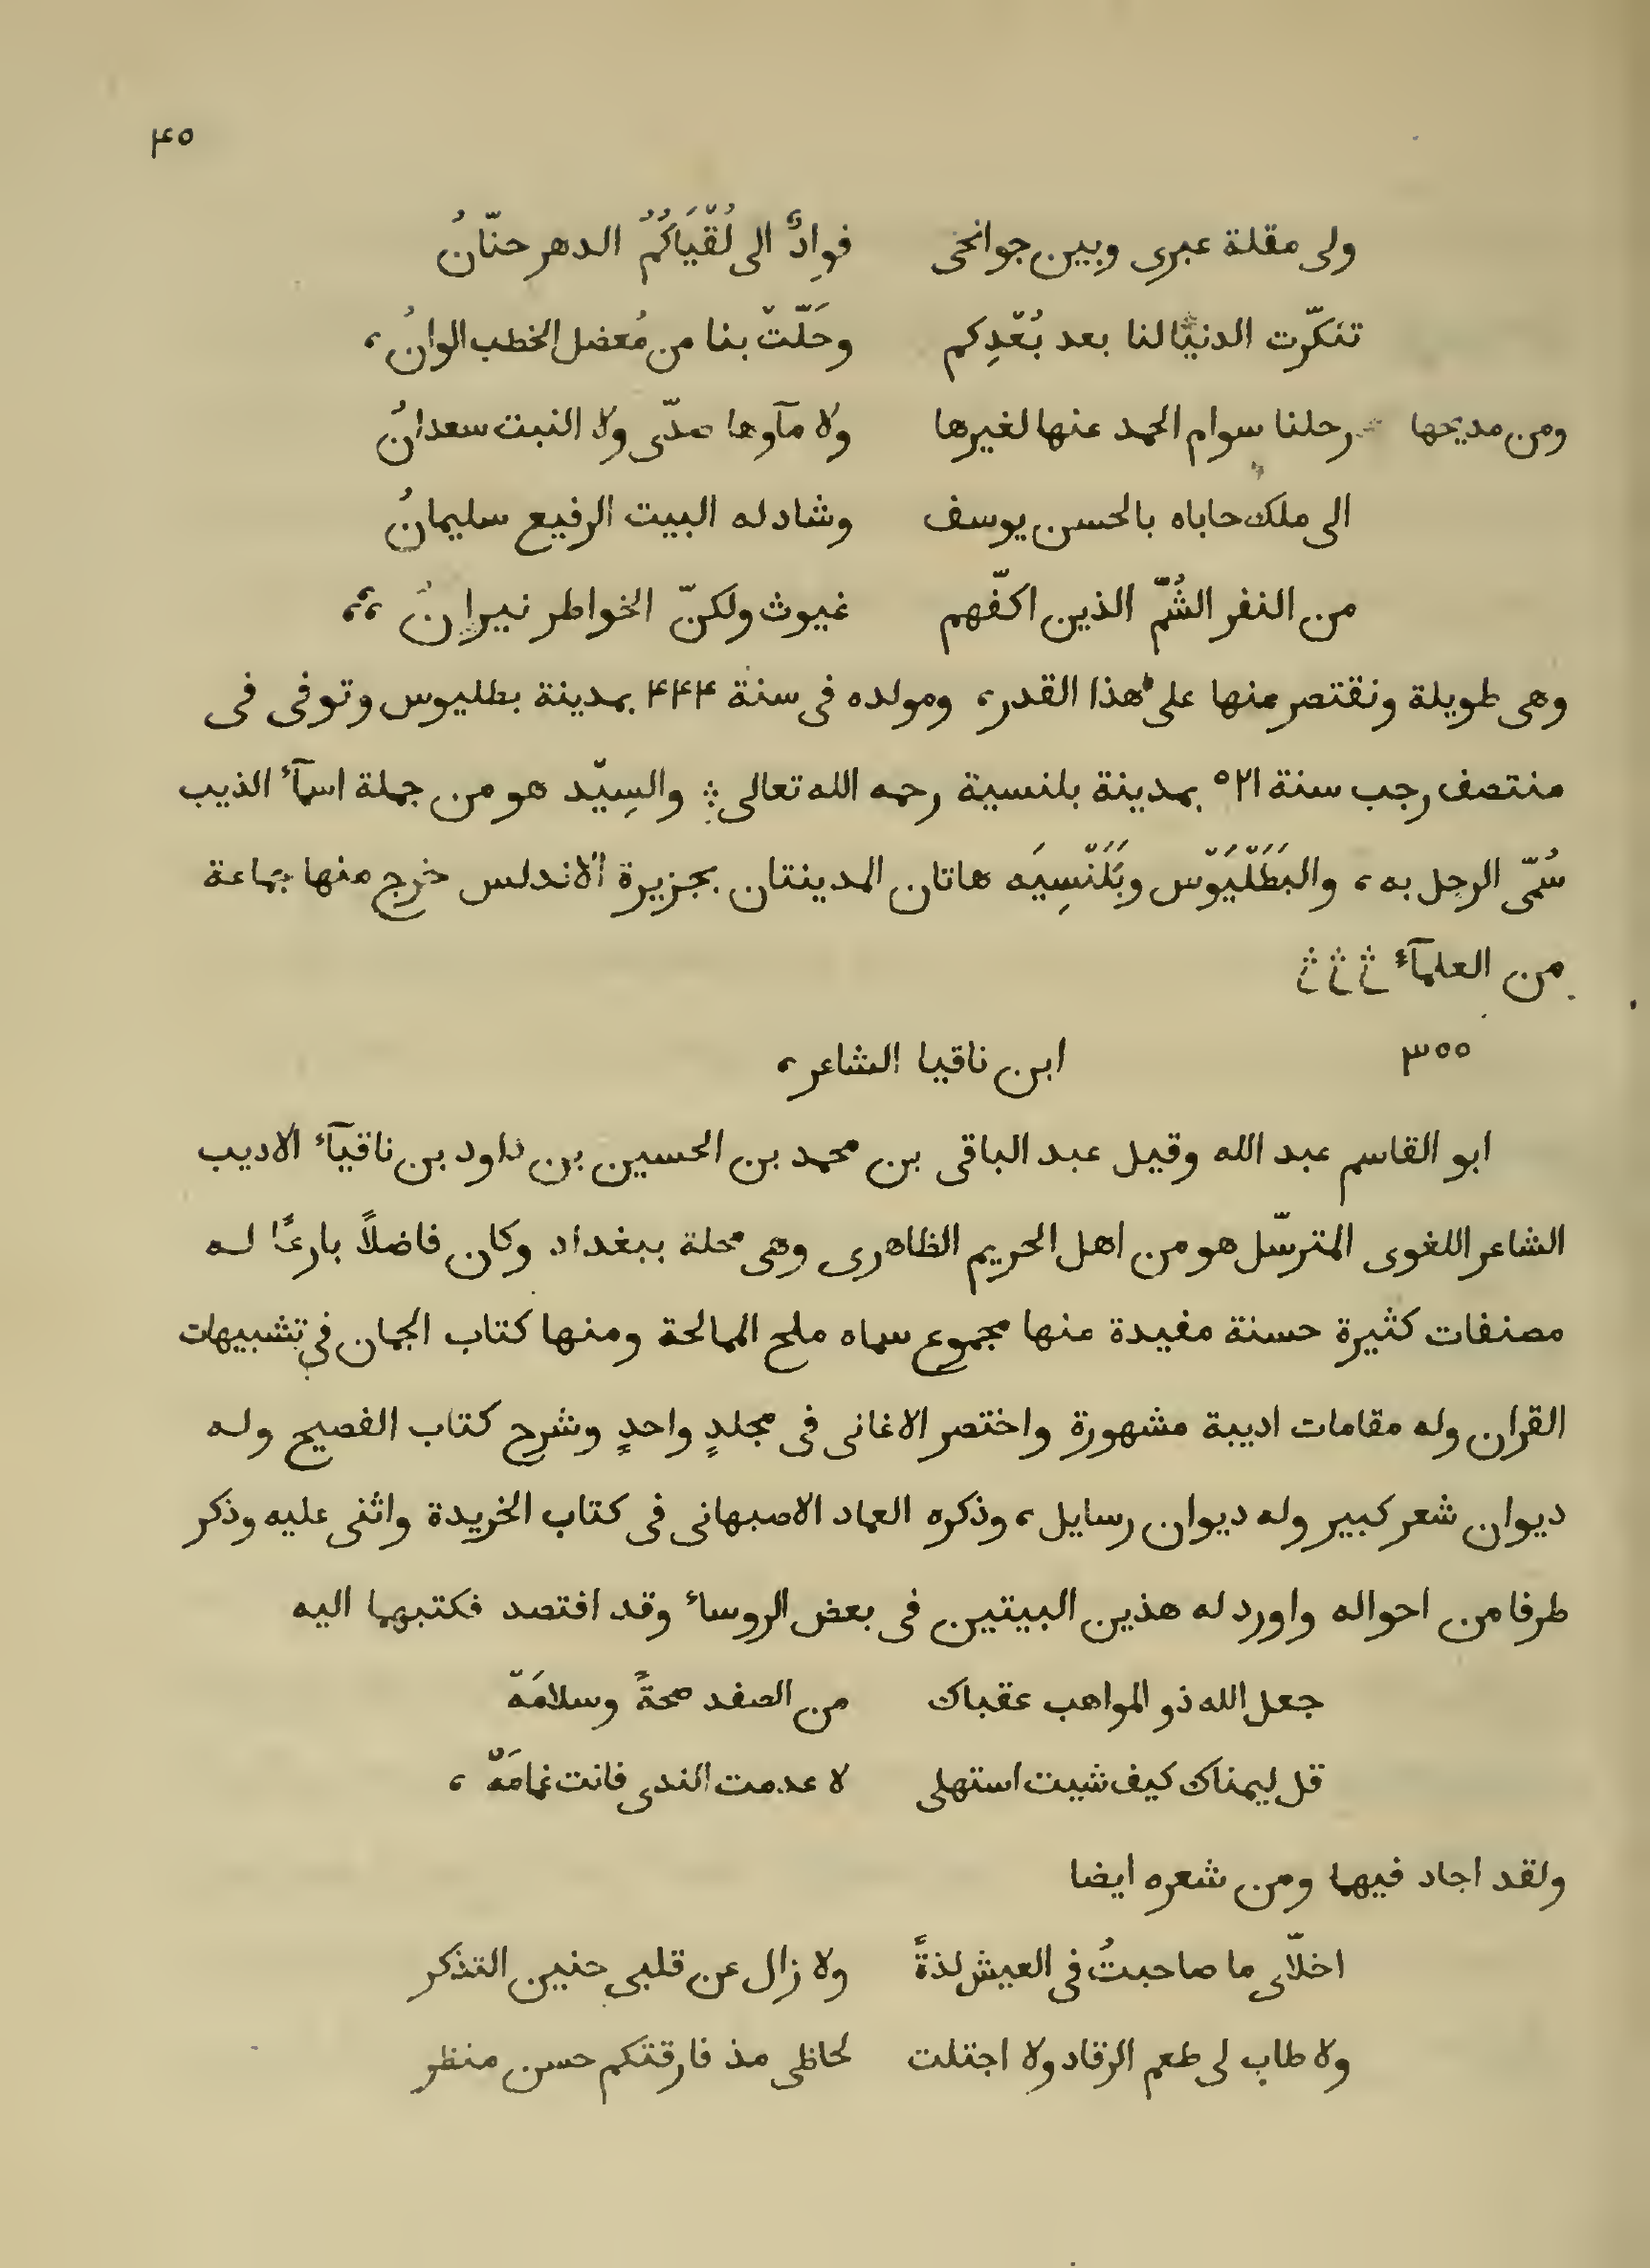 ۴۵
ولى مقلة عبرى وبين جوانحى فوادٌ الى لُقْيَاكُمُ الدهر حنّانُ
تنكّرت الدنيا لنا بعد بُعْدِكم وحَلّتْ بنا من مُعضل الخطب الوانُ ،
ومن مديحها رحلنا سوام الحمد عنها لغيرها ولا مآوها صدّى ولا النبت سعدانُ
الى ملك حاباه بالحسن يوسف وشاد له البيت الرفيع سليمانُ
من النفر الشُمّ الذين اكفّهم غيوث ولكنّ الخواطر نيرانُ ،،
وهى طويلة ونقتصر منها على هذا القدر ، ومولده فى سنة ۴۴۴ بمدينة بطليوس وتوفى فى
منتصف رجب سنة ۵۲۱ بمدينة بلنسية رحمه الله تعالى والسِيْد هو من جملة اسمآء الذيب
سُمّى الرجل به ، والبَطَلْيَوْس وبَلَنْسِيَه هاتان المدينتان بجزيرة الاندلس خرج منها جماعة
من العلمآء
۳۰۰ ابن ناقيا الشاعر ،
ابو القاسم عبد الله وقيل عبد الباقى بن محمد بن الحسين بن داود بن ناقيآء الاديب
الشاعر اللغوى المترسّل هو من اهل الحريم الظاهرى وهى محلة ببغداد وكان فاضلاً بارعًا له
مصنفات كثيرة حسنة مفيدة منها مجموع سماه ملح الممالحة ومنها كتاب الجمان فى تشبيهات
القران وله مقامات اديبة مشهورة واختصر الاغانى فى مجلدٍ واحدٍ وشرح كتاب الفصيح وله
ديوان شعر كبير وله ديوان رسايل ، وذكره العماد الاصبهانى فى كتاب الخريدة واثنى عليه وذكر
طرفا من احواله واورد له هذين البيتين فى بعض الروساء وقد افتصد فكتبهما اليه
جعل الله ذو المواهب عقباك من الصفد صحةً وسلامَهْ
قل ليمناك كيف شيت استهلى لا عدمت الندى فانت غمامَهْ ،
ولقد اجاد فيهما ومن شعره ايضا
اخلّاى ما صاحبتُ فى العيش لذةً ولا زال عن قلبى حنين التذكر
ولا طاب لى طعم الرقاد ولا اجتلت لحاظى مذ فارقتكم حسن منظر